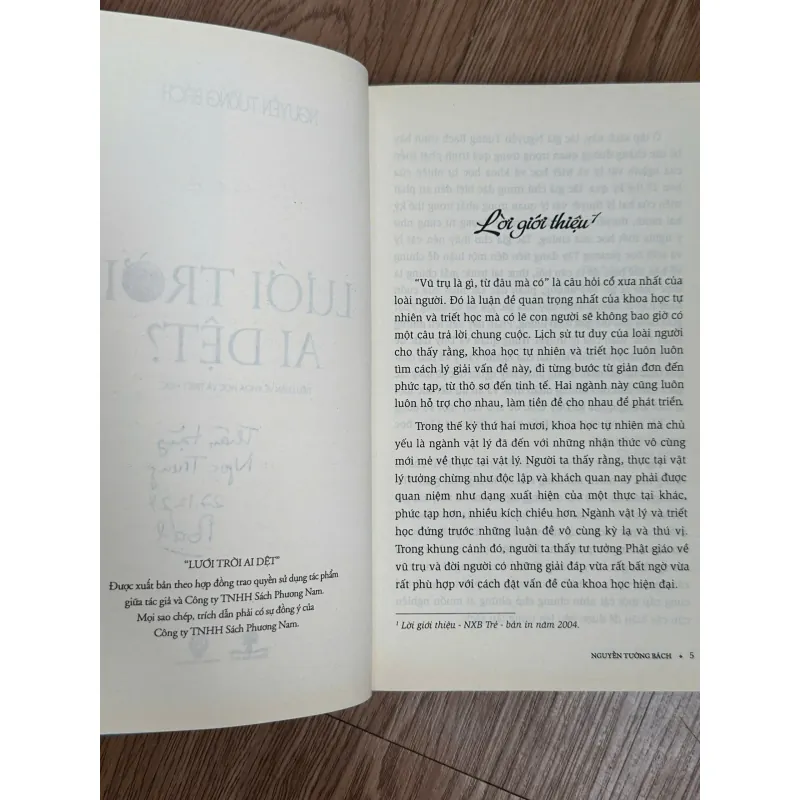 "LƯỚI TRỜI AI DỆT"
Được xuất bản theo hợp đồng trao quyền sử dụng tác phẩm
giữa tác giả và Công ty TNHH Sách Phương Nam.
Mọi sao chép, trích dẫn phải có sự đồng ý của
Công ty TNHH Sách Phương Nam.
Lời giới thiệu¹
"Vũ trụ là gì, từ đâu mà có" là câu hỏi cổ xưa nhất của
loài người. Đó là luận đề quan trọng nhất của khoa học tự
nhiên và triết học mà có lẽ con người sẽ không bao giờ có
một câu trả lời chung cuộc. Lịch sử tư duy của loài người
cho thấy rằng, khoa học tự nhiên và triết học luôn luôn
tìm cách lý giải vấn đề này, đi từng bước từ giản đơn đến
phức tạp, từ thô sơ đến tinh tế. Hai ngành này cũng luôn
luôn hỗ trợ cho nhau, làm tiền đề cho nhau để phát triển.
Trong thế kỷ thứ hai mươi, khoa học tự nhiên mà chủ
yếu là ngành vật lý đã đến với những nhận thức vô cùng
mới mẻ về thực tại vật lý. Người ta thấy rằng, thực tại vật
lý tưởng chừng như độc lập và khách quan nay phải được
quan niệm như dạng xuất hiện của một thực tại khác,
phức tạp hơn, nhiều kích chiều hơn. Ngành vật lý và triết
học đứng trước những luận đề vô cùng kỳ lạ và thú vị.
Trong khung cảnh đó, người ta thấy tư tưởng Phật giáo về
vũ trụ và đời người có những giải đáp vừa rất bất ngờ vừa
rất phù hợp với cách đặt vấn đề của khoa học hiện đại.
¹ Lời giới thiệu - NXB Trẻ - bản in năm 2004.
NGUYỄN TƯỜNG BÁCH ✦ 5